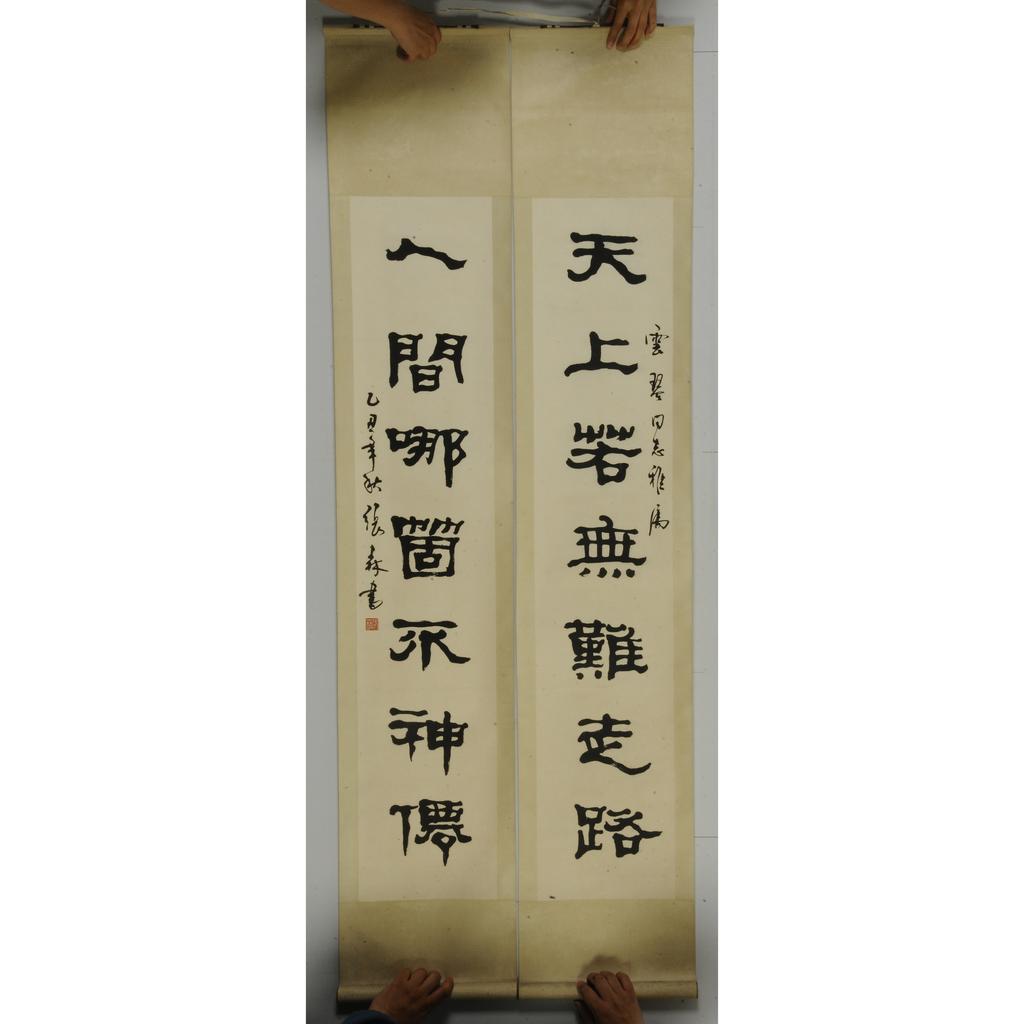 天上若無難走路
雲琴同志雅屬
人間哪箇不神僊
乙丑年秋張森書